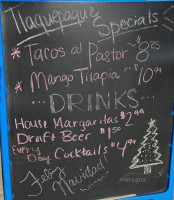 Tlaquepaque Specials
* Tacos al Pastor ~ 8.25
* Mango Tilapia ~ $10.99
... DRINKS...
House Margaritas $2.99
Draft Beer $1.50
Every Day Cocktails $4.99
Feliz
Navidad!